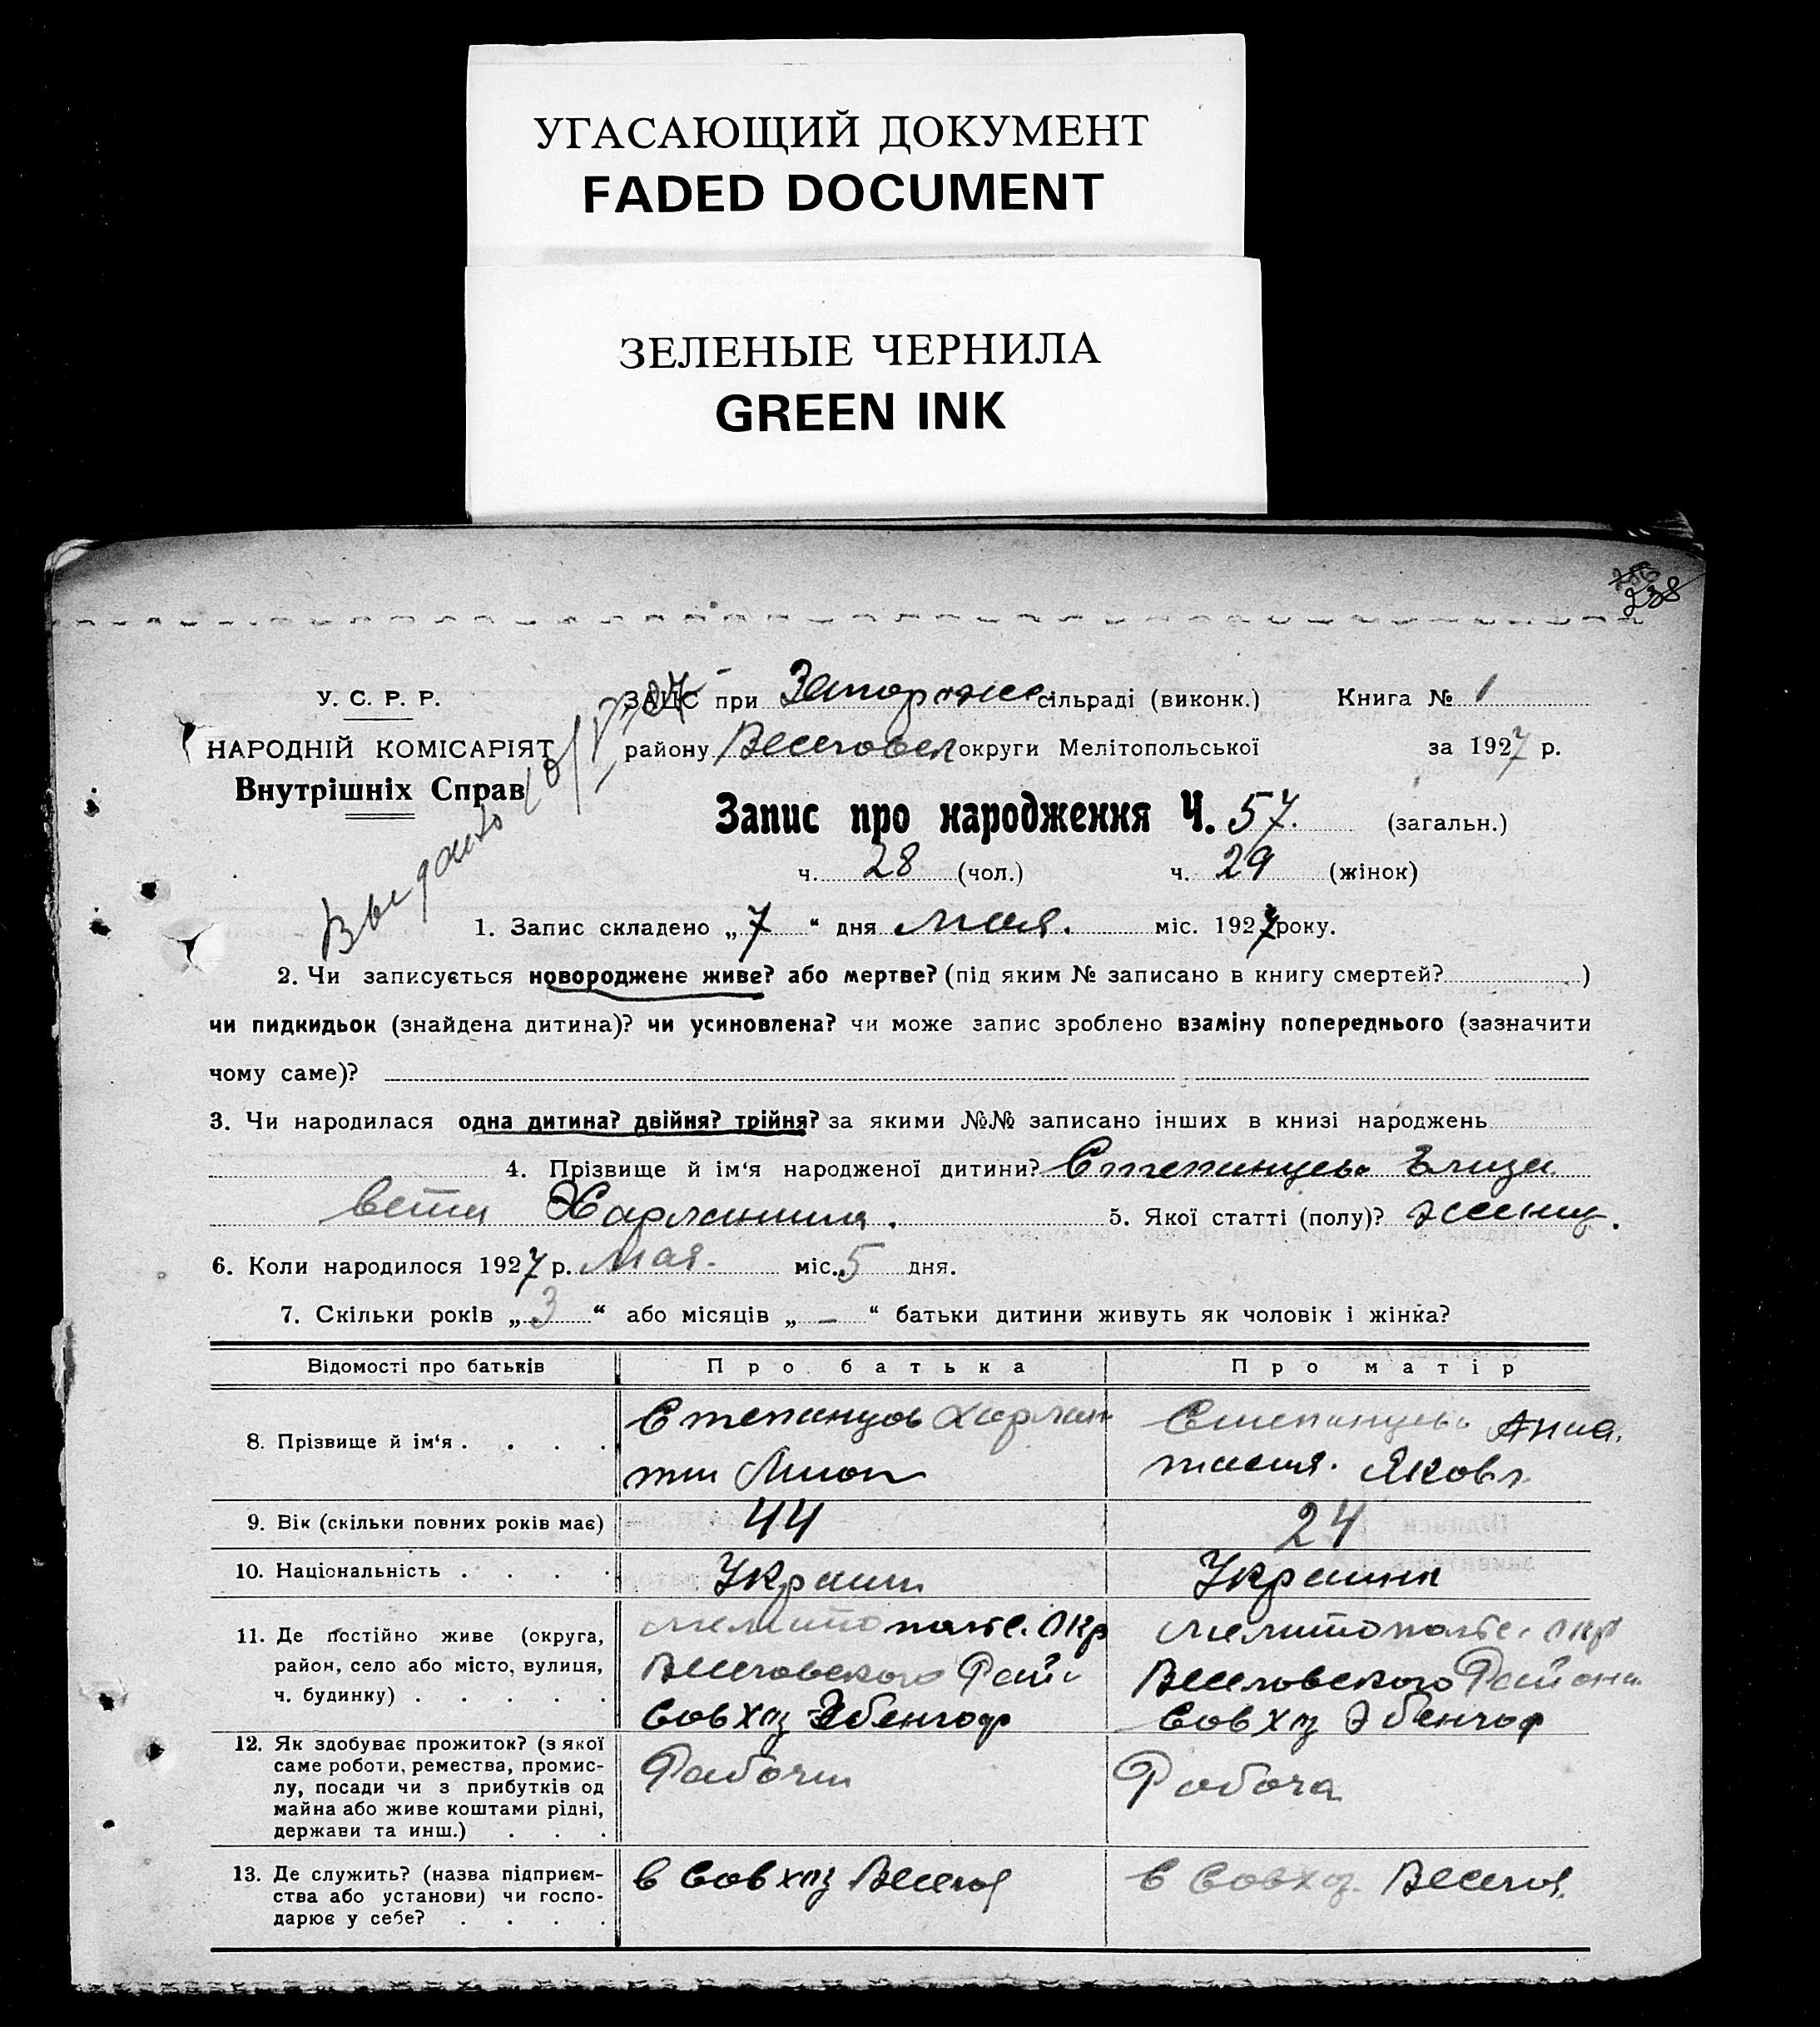 УГАСАЮЩИЙ ДОКУМЕНТ
FADED DOCUMENT
ЗЕЛЕНЫЕ ЧЕРНИЛА
GREEN INK
238
У. С. Р. Р.
НАРОДНІЙ КОМІСАРІЯТ
Внутрішніх Справ
Выдано
ЗАЦС при Запорожс сільраді (виконк.) Книга № 1
району Веселовск округи Мелітопольської за 1927 р.
Запис про народження Ч. 57. (загальн.)
ч. 28 (чол.) ч. 29 (жінок)
1. Запис складено „ 7 “ дня мая. міс. 1927 року.
2. Чи записується новороджене живе? або мертве? (під яким № записано в книгу смертей? )
чи пидкидьок (знайдена дитина)? чи усиновлена? чи може запис зроблено взаміну попереднього (зазначити
чому саме)?
3. Чи народилася одна дитина? двійня? трійня? за якими №№ записано інших в книзі народжень
4. Прізвище й ім‘я народженої дитини? Степанцева Елиза
вета Харлампия. 5. Якої статті (полу)? женщ.
6. Коли народилося 1927 р. мая. міс. 5 дня.
7. Скільки років „ 3 “ або місяців „ – “ батьки дитини живуть як чоловік і жінка?
Відомості про батьків Про батька Про матір
8. Прізвище й ім‘я . . . . Степанцов Харлам Степанцева Анна.
тасия. Яковл
9. Вік (скільки повних років має) 44 24
10. Національність . . . . Украин Украинк
11. Де постійно живе (округа, Мелитопольс. Окр Мелитопольс. Окр
район, село або місто, вулиця, Веселовского Рай Веселовского Района
ч. будинку) . . . . . Совхоз Эбенгоф Совхоз Эбенгоф
12. Як здобуває прожиток? (з якої Рабочи Рабоча
саме роботи, ремества, промис-
лу, посади чи з прибутків од
майна або живе коштами рідні,
держави та инш.) . . .
13. Де служить? (назва підприєм- в Совхоз Весел в Совхоз Весел
ства або установи) чи госпо-
дарює у себе? . . . .